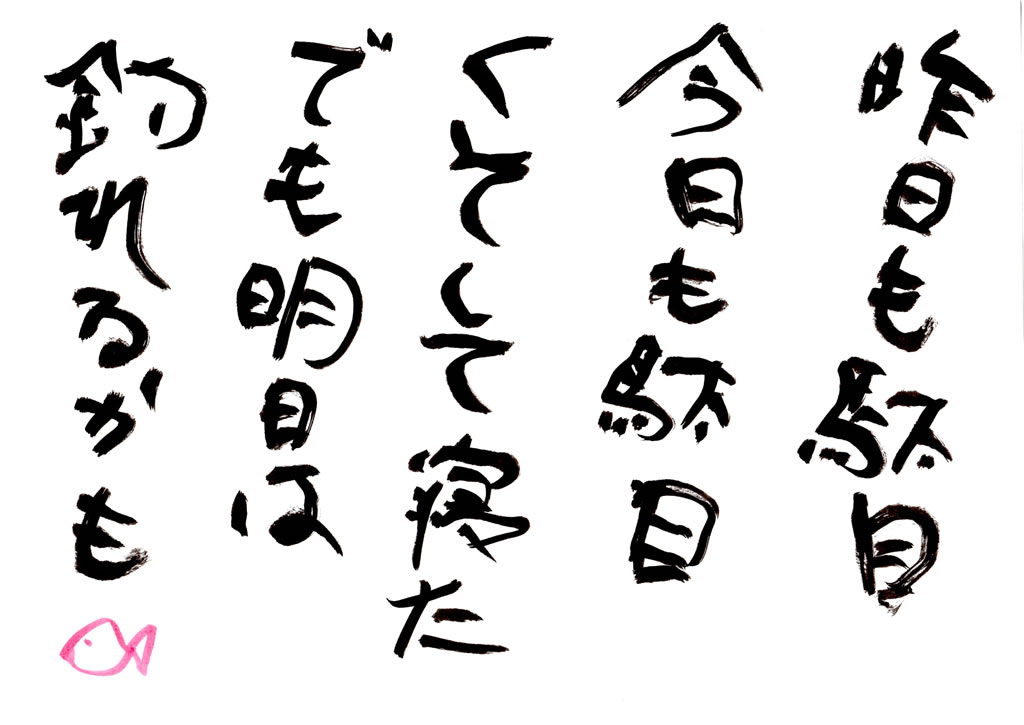 昨日も駄目
今日も駄目
くそして寝た
でも明日は
釣れるかも